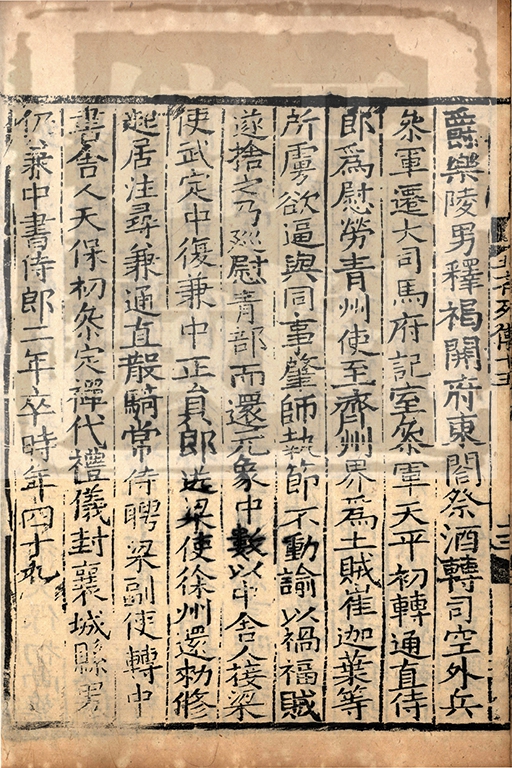 爵樂陵男釋褐開府東閤祭酒轉司空外兵
叅軍遷大司馬府記室叅軍天平初轉通直侍
郎爲慰勞青州使至齊州界爲土賊崔迦葉等
所虜欲逼與同事肇師執節不動諭以禍福賊
遂捨之乃廵慰青部而還元象中數以中舍人接梁
使武定中復兼中正員郎送梁使徐州還勑修
起居注尋兼通直散騎常侍聘梁副使轉中
書舍人天保初叅定禪代禮儀封襄城縣男
仍兼中書侍郎二年卒時年四十九
北齊列傳十五